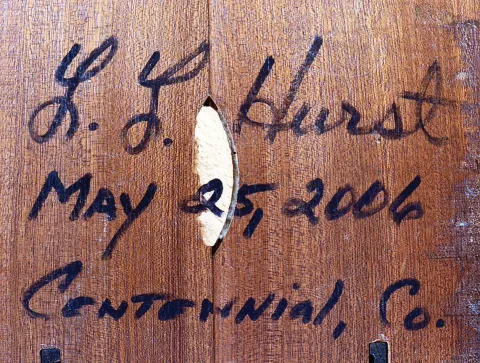 L. L. Hurst
May 25, 2006
Centennial, Co.